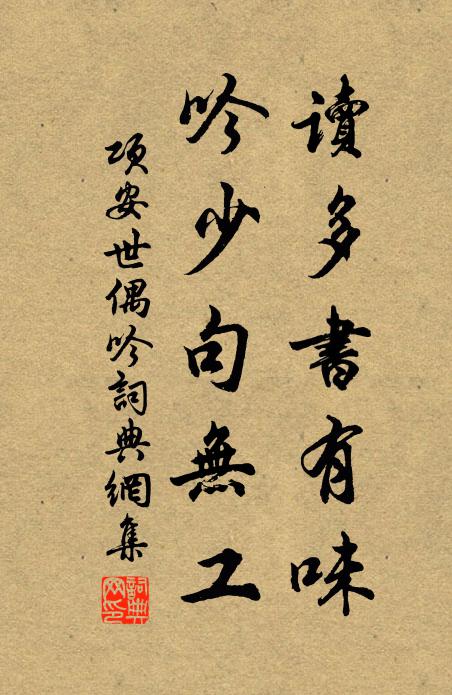 讀多書有味
吟少句無工
項安世偶吟詞典網集
詞典網印